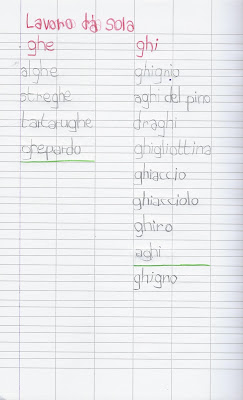 Lavoro da sola
ghe ghi
alghe ghignio
streghe aghi del pino
tartarughe draghi
ghepardo ghigliottina
ghiaccio
ghiacciolo
ghiro
aghi
ghigno